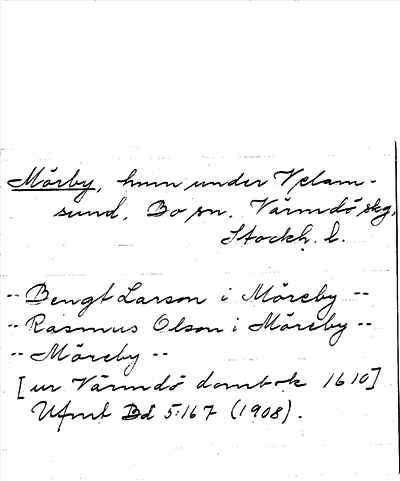 Mörby, hmn under Velam-
sund, Bo sn. Värmdö skg,
Stockh. l.
-- Bengt Larson i Möreby --
-- Rasmus Olson i Möreby --
-- Möreby --
[ur Värmdö dombok 1610]
Ufmt Bd 5:167 (1908).